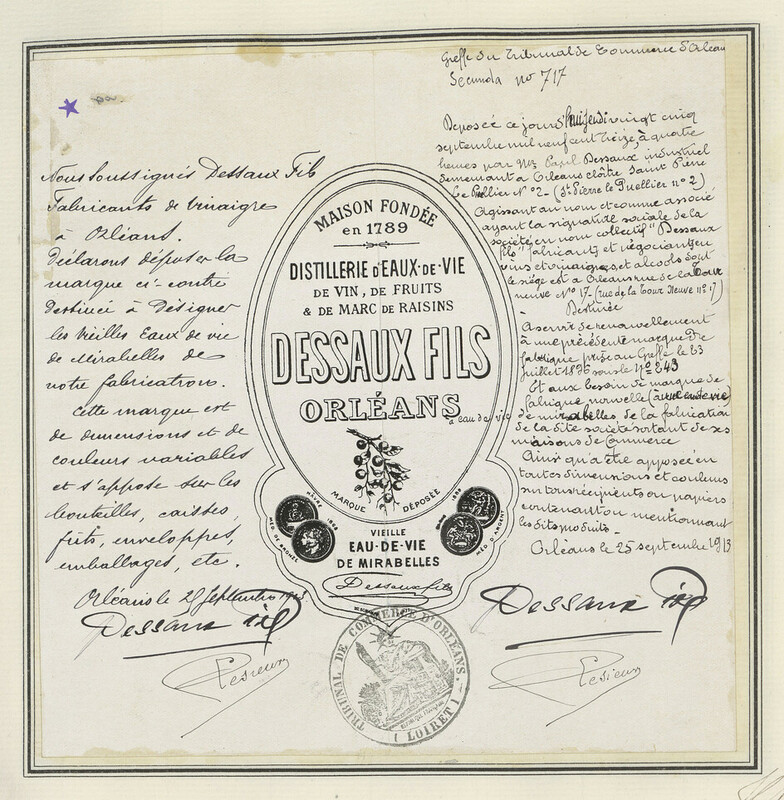 Greffe du Tribunal de Commerce d'Orléans
Secunda no 717
Nous soussignés Dessaux Fils
Fabricants de Vinaigre
à Orléans.
Déclarons déposer la
marque ci-contre
destinée à désigner
les vieilles Eaux de vie
de Mirabelles de
notre fabrication.
Cette marque est
de dimensions et de
couleurs variables
et s'appose sur les
bouteilles, caisses,
fûts, enveloppes,
emballages, etc.
Orléans le 25 Septembre 1913
Dessaux fils
Lesieur
MAISON FONDÉE
en 1789
DISTILLERIE D'EAUX-DE-VIE
DE VIN, DE FRUITS
& DE MARC DE RAISINS
DESSAUX FILS
ORLÉANS
MARQUE DÉPOSÉE
VIEILLE
EAU-DE-VIE
DE MIRABELLES
Dessaux fils
MED. DE BRONZE
MED. D'ARGENT
TRIBUNAL DE COMMERCE D'ORLÉANS.
(LOIRET)
Déposée ce jourd'hui jeudi vingt cinq
septembre mil neuf cent treize, à quatre
heures par Mr Dessaux industriel
demeurant à Orléans cloître Saint Pierre
le Puellier No 2 - (St Pierre le Puellier no 2)
Agissant au nom et comme associé
ayant la signature sociale de la
société en nom collectif "Dessaux
fils" fabricants et négociants en
vins et vinaigres, et alcools dont
le siège est à Orléans rue de la Tour
neuve No 17 - (rue de la Tour Neuve no 17)
Destinée
A servir de renouvellement
à une précédente marque de
fabrique prise au Greffe le 23
juillet 1896 sous le No 243
Et aux besoin de marque de
fabrique nouvelle
à eau de vie de mirabelles de la fabrication
de la dite société sortant de ses
maisons de Commerce
Ainsi qu'à être apposée en
toutes dimensions et couleurs
sur tous récipients ou papiers
contenant ou mentionnant
les dits produits -
Orléans le 25 septembre 1913
Dessaux fils
Lesieur